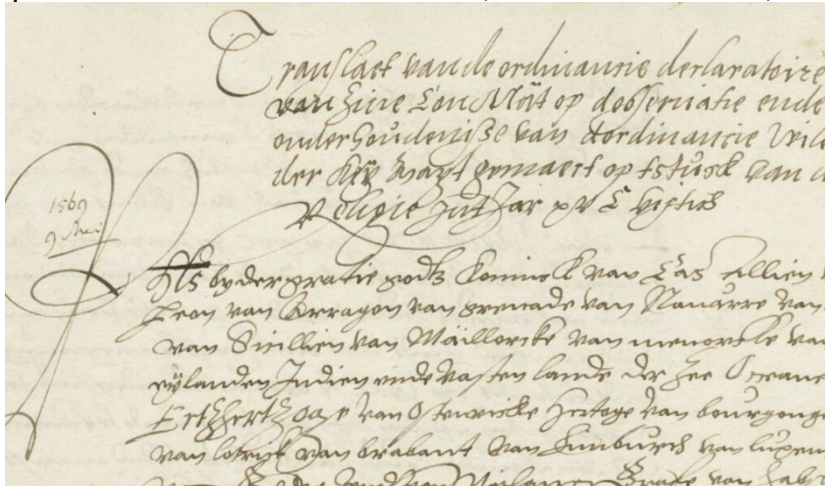 Translaet vande ordinancie declaratoire
van zijne Con Ma.t op dobservatie ende
onderhoudenisse van dordinancie Wile
der Key Ma.t gemaect op tstuck van d
Religie Int Jar xv C
1569
9 Mei
by der gratie godts Coninck van Castillien
Leon van Arragon van grenade van Navarre van
van Sicillien van Maillorcke van menorcke van
eylanden Indien ende vasten lande der zee Oceane
Ertzhertzoge van Ostenricke Hertoge van bourgonge
van lotrijk van brabant van Limburch van luxem
Grave van habs